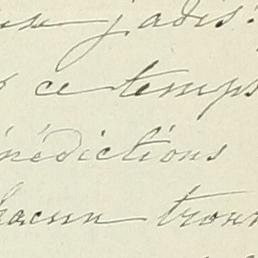 jadis.
ce temps
énédictions
hacun trou